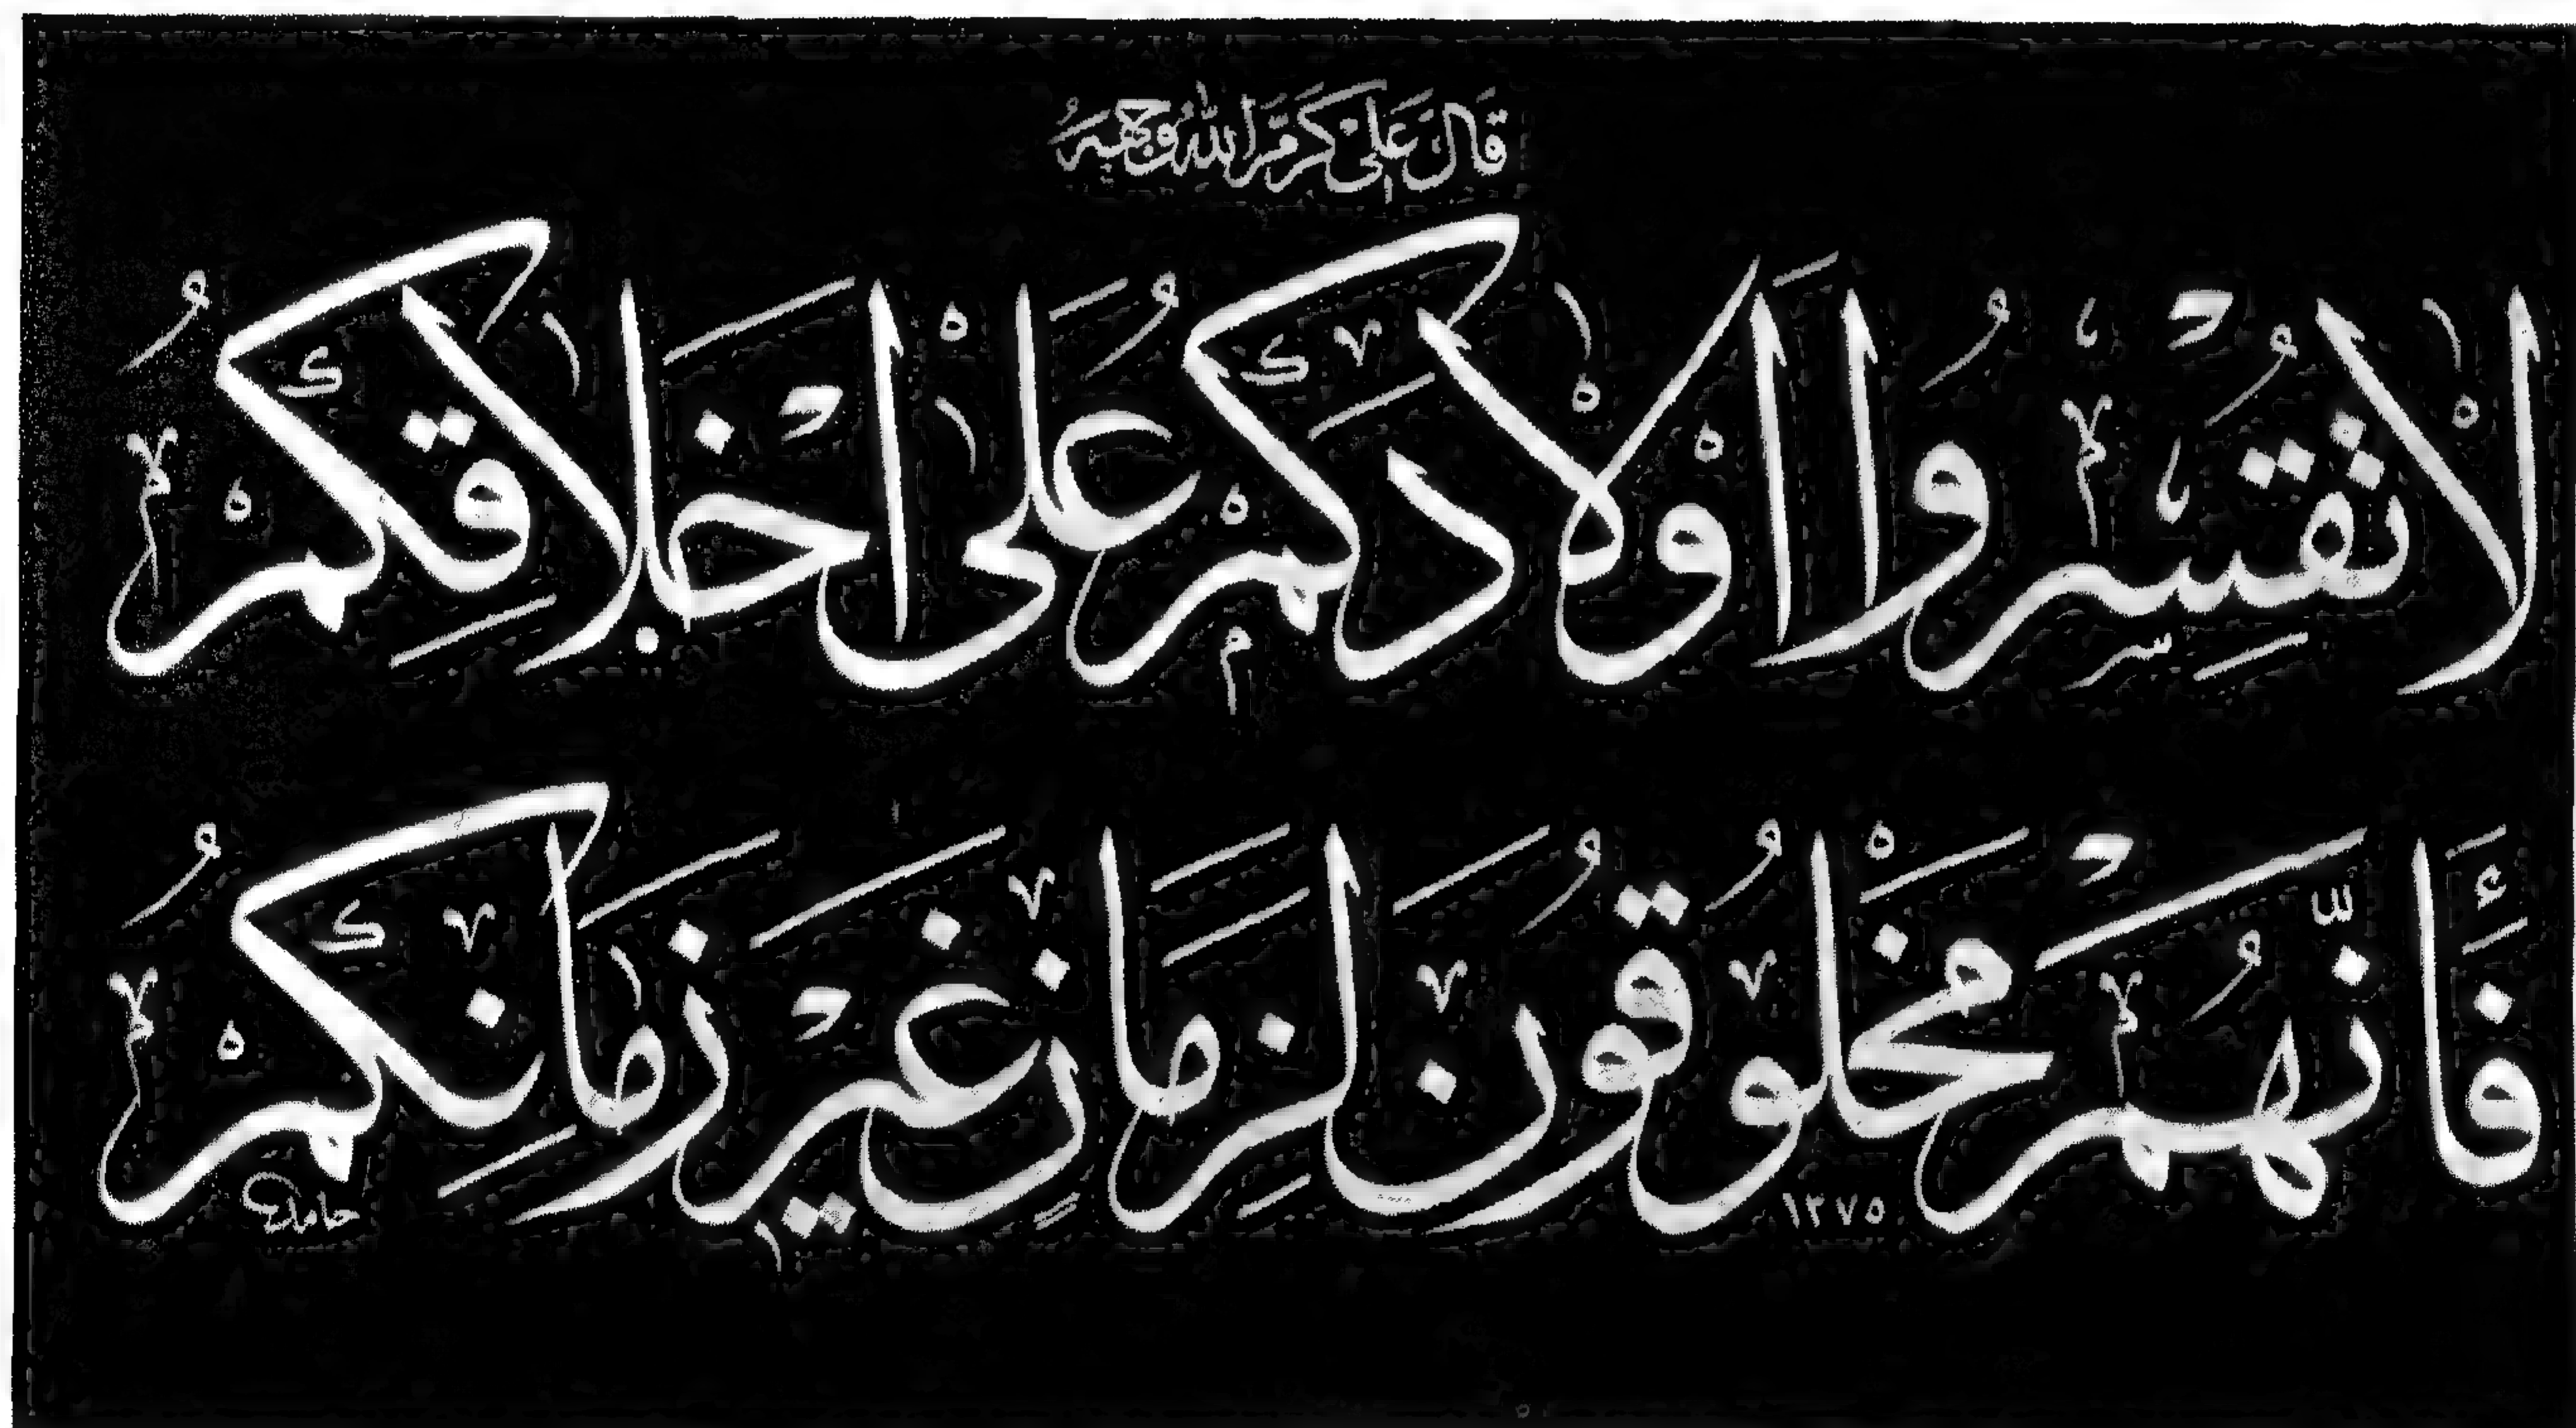 قَالَ عَلِيٌّ كَرَّمَ اللهُ وَجْهَهُ
لَا تُقْسِرُوا أَوْلَادَكُمْ عَلَى أَخْلَاقِكُمْ
فَإِنَّهُمْ مَخْلُوقُونَ لِزَمَانٍ غَيْرِ زَمَانِكُمْ
١٣٧٥
حامد